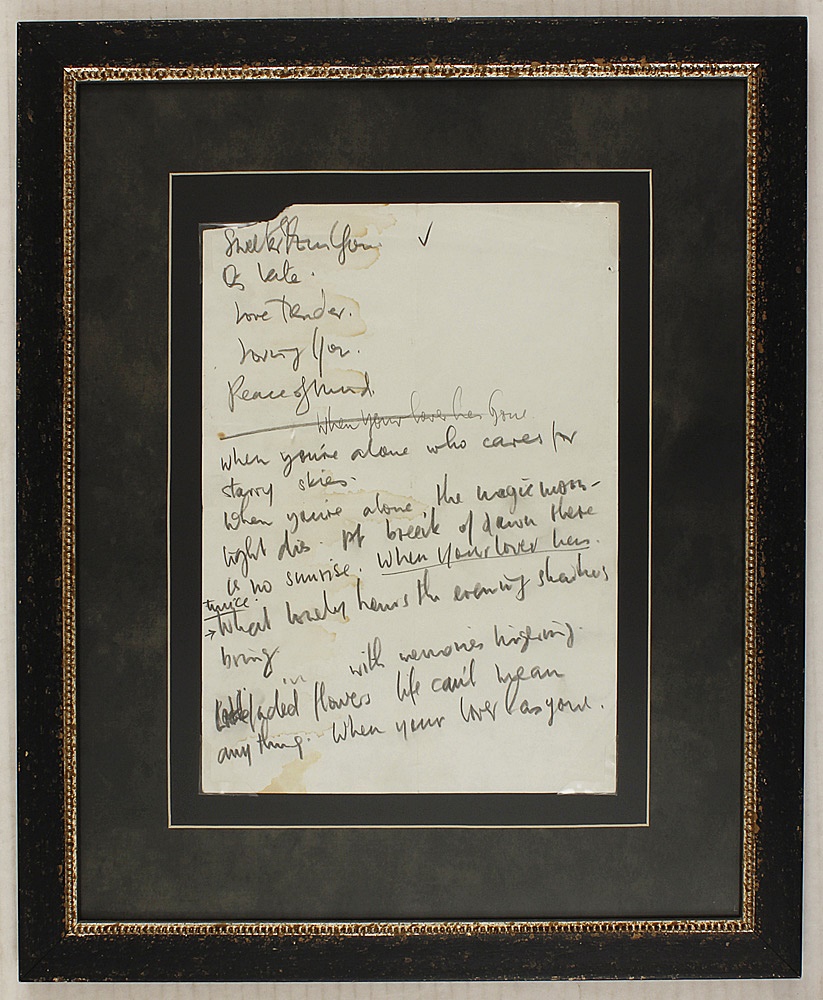 Sweeter than you ✓
As Late.
Love Tender.
Loving You.
Peace of Mind.
When Your lover has gone
when you're alone who cares for
starry skies.
When you're alone, the magic moon-
light dies. At break of dawn there
is no sunrise. When Your lover has.
twice.
→ What lonely hours the evening shadows
bring
with memories lingering.
faded flowers life can't mean
anything. When your lover has gone.